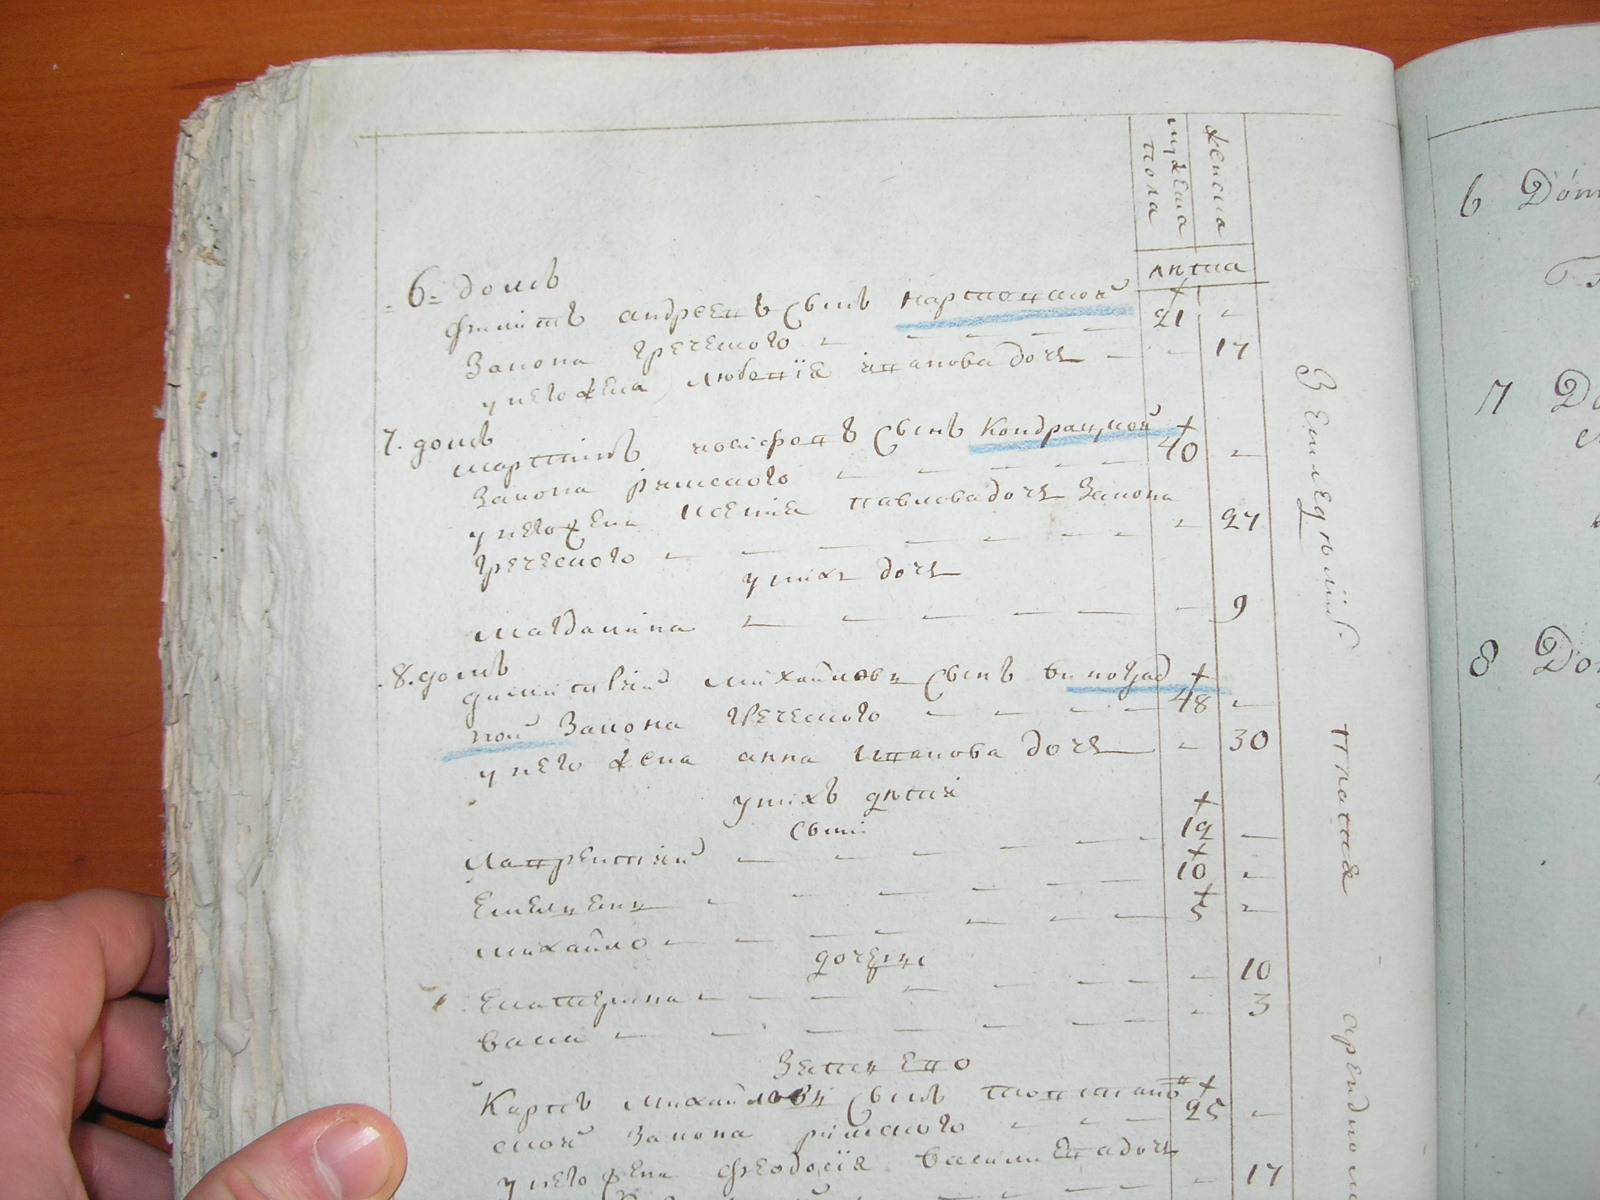 мужеска пола
женска
лѣта
6 домъ
филипъ андреевъ сынъ мартовской 21 -
Закона греческого - - - -
у него жена любовія иванова дочь - - 17
7. домъ
мартинъ иосифовъ сынъ Кондрацкой 40 -
Закона римского - - - -
у него жена Ксенія павлова дочь Закона
греческого - - - - - - 27
у нихъ дочь
Магдалина - - - - - 9
8. домъ
димитрій михайловъ сынъ виноград
ной Закона греческого - - - 48 -
у него жена анна иванова дочь - 30
у нихъ дѣти
сыни
Лаврентій - - - - - 12 -
Емельянъ - - - - - 10 -
михайло - - - - - 5 -
дочери
Екатерина - - - - - 10
васса - - - - - 3
Зятиево
Карпъ михайловъ сынъ
ской Закона римского - - - 25 -
у него жена феодосія василиева дочь
17
Земледеліе
платя
6 Дом
7 До
8 До